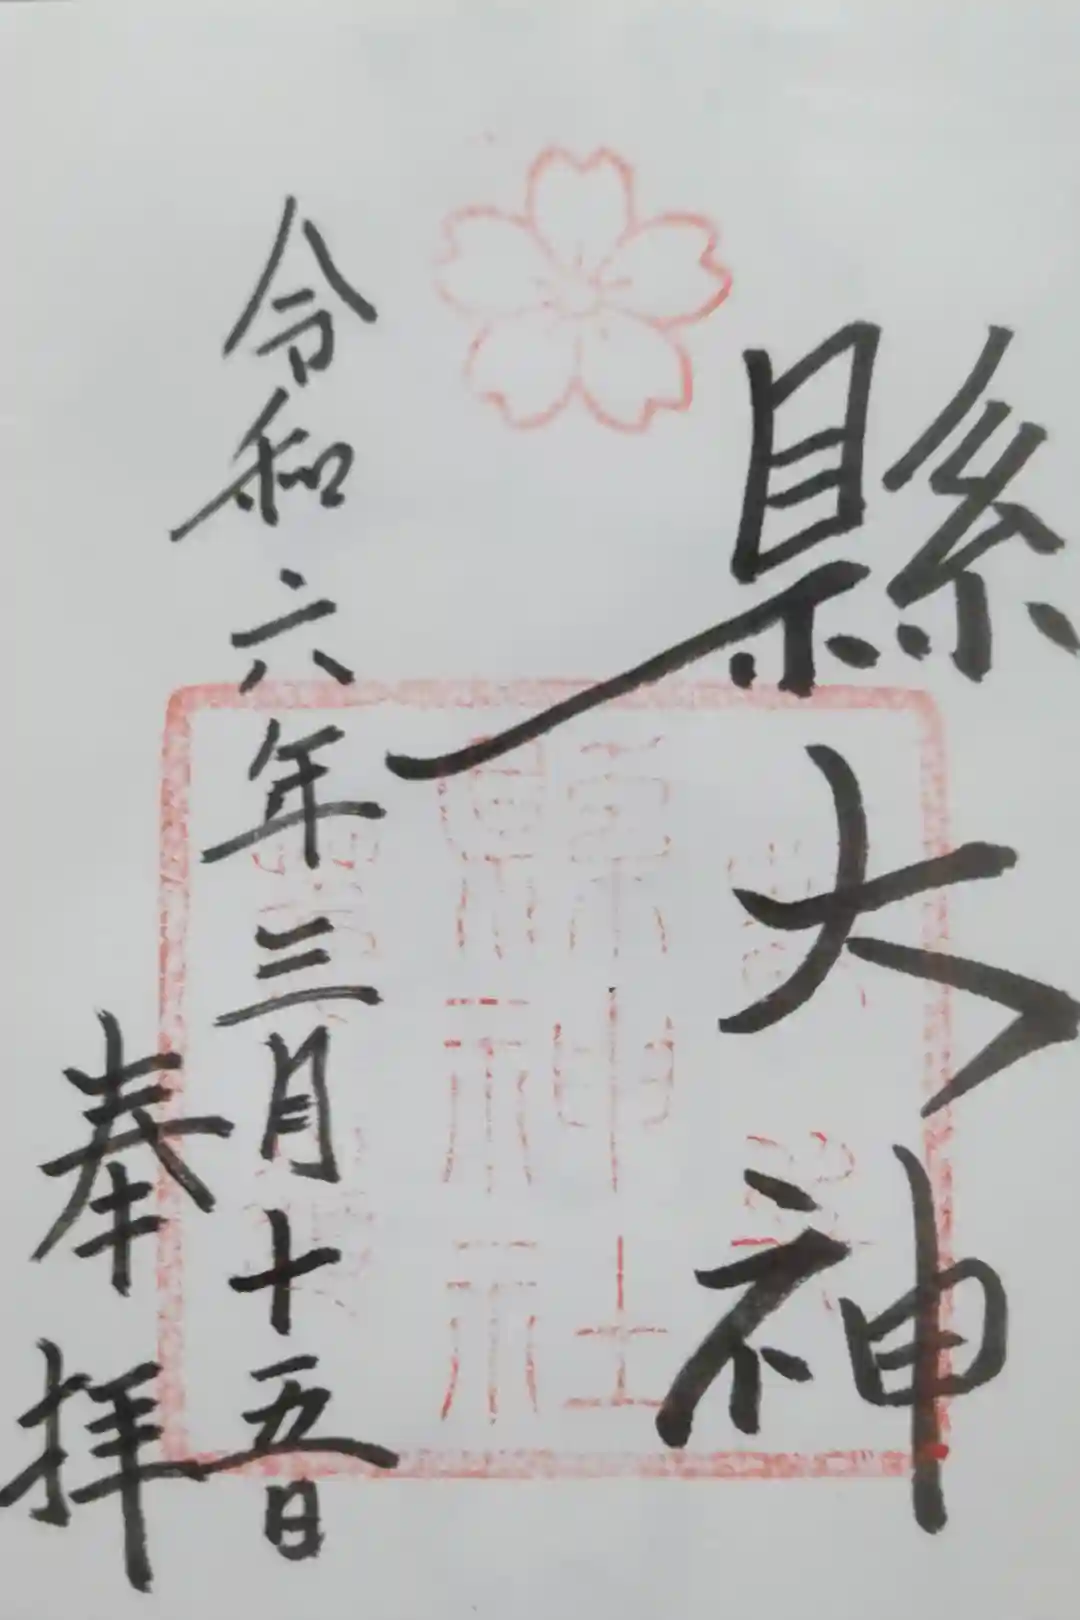 縣大神
縣神社
令和六年三月十五日
奉拝